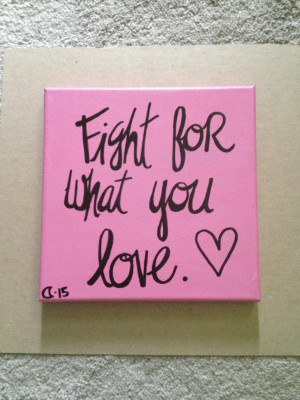 Fight foR
what you
love. ♡
CL·15